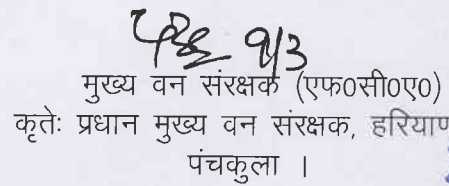 9/3
मुख्य वन संरक्षक (एफ0सी0ए0)
कृतेः प्रधान मुख्य वन संरक्षक, हरियाण
पंचकुला ।